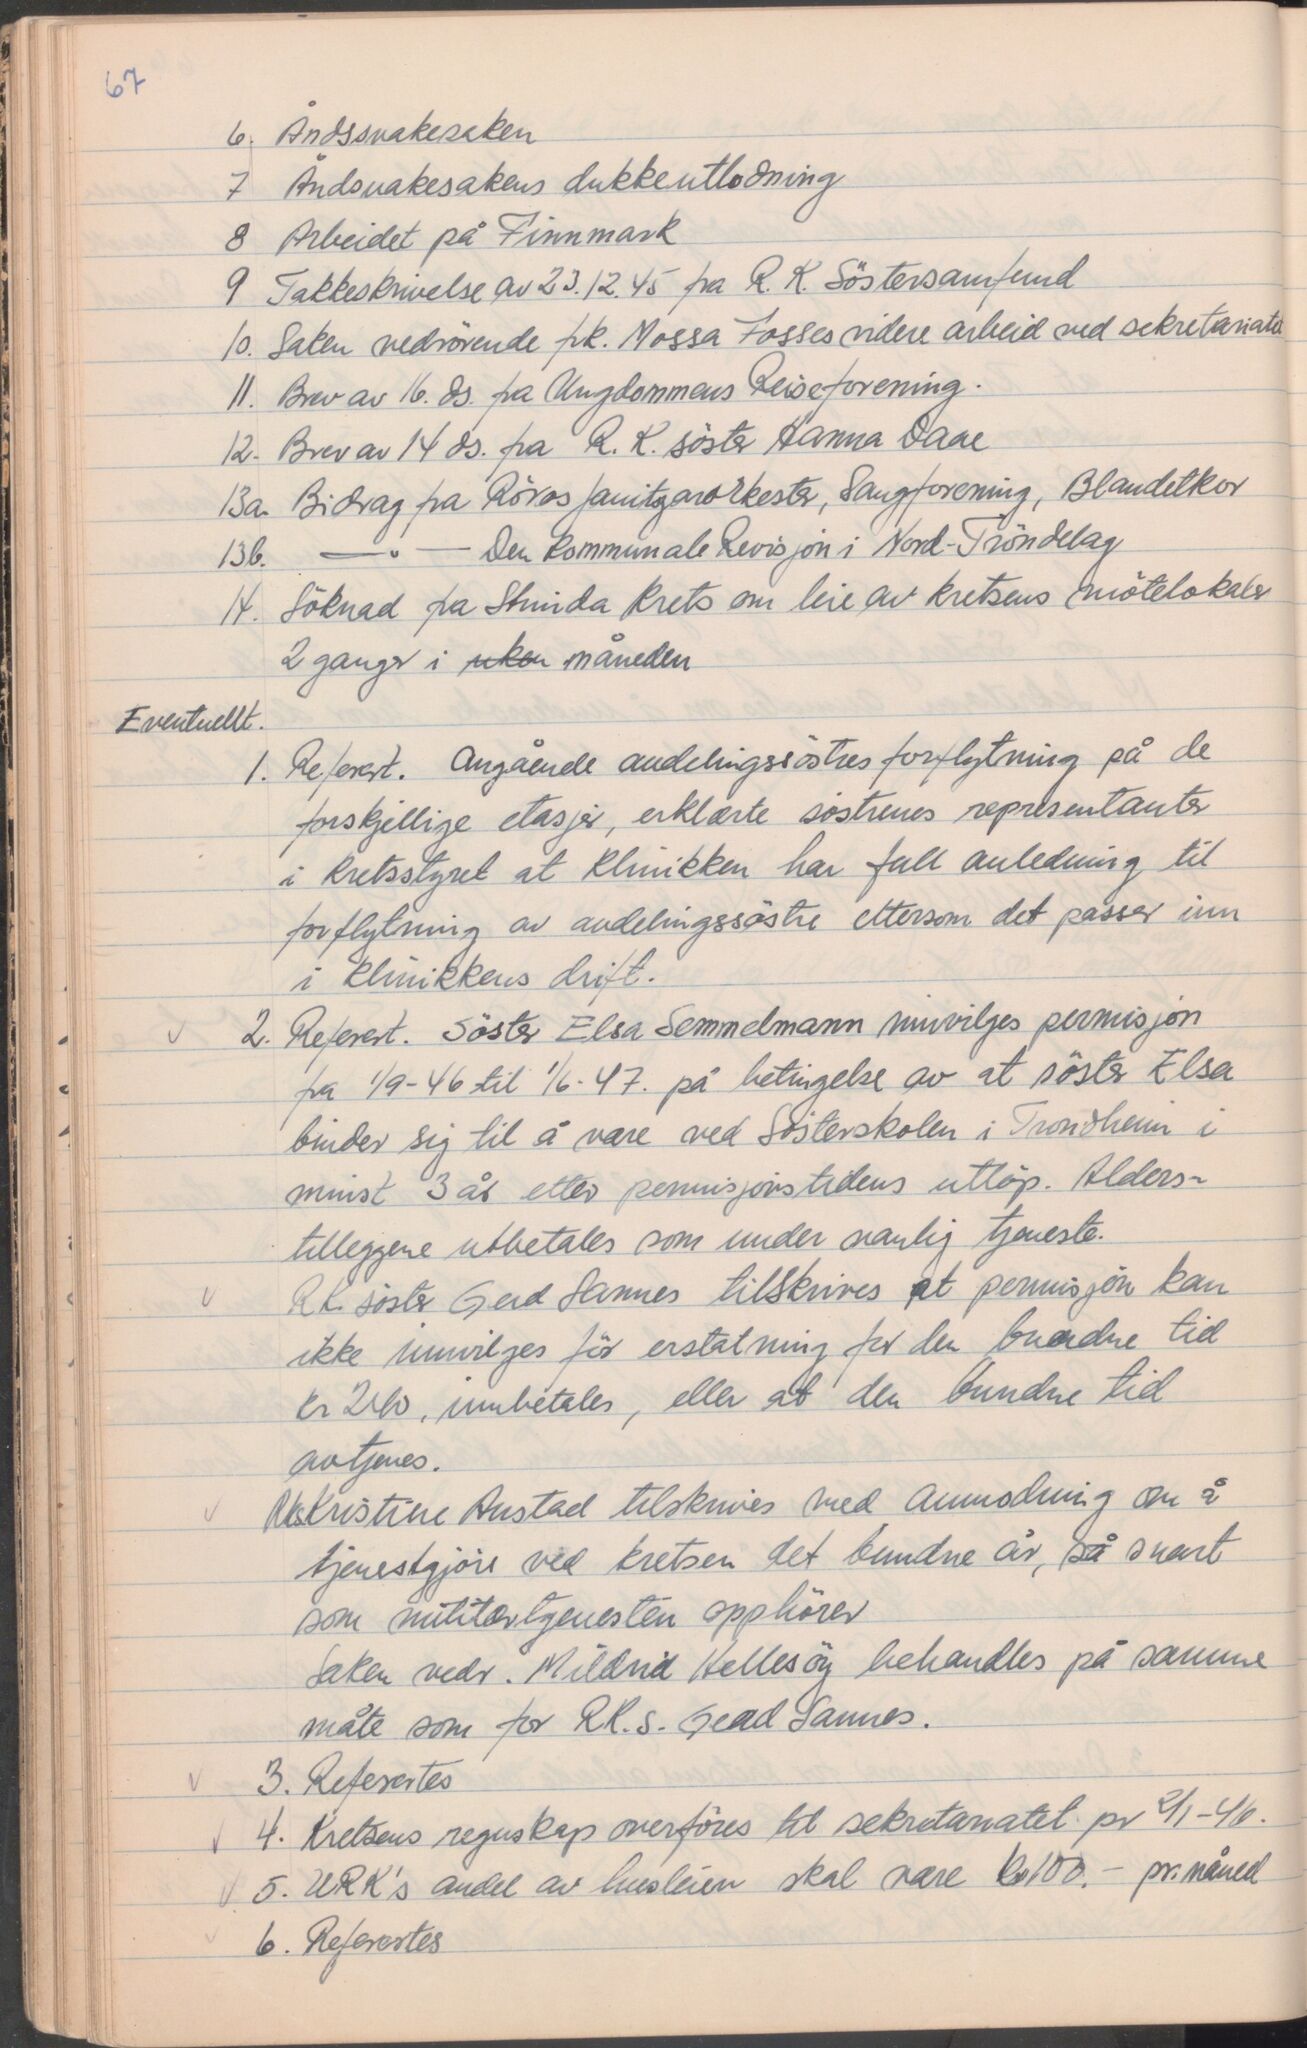 67
6. Åndssvakesaken
7 Åndsvakesakens dukkeutlodning
8 Arbeidet på Finnmark
9 Takkeskrivelse av 23.12.45 fra R.K. Söstersamfund
10. Saken vedrörende frk. Mossa Fosses videre arbeid ved sekretariatet
11. Brev av 16. ds. fra Ungdommens Reiseforening.
12. Brev av 14 ds. fra R.K. söster Hanna Daae
13a. Bidrag fra Röros Janitzarorkester, Sangforening, Blandetkor
13b. —"— Den kommunale Revisjon i Nord-Tröndelag
14. Söknad fra Strinda Krets om leie av kretsens mötelokaler
2 ganger i uken måneden
Eventuellt.
1. Referert. Angående avdelingssöstres forflytning på de
forskjellige etasjer, erklærte söstrenes representanter
i kretsstyret at Klinikken har full anledning til
forflytning av avdelingssöstre ettersom det passer inn
i Klinikkens drift.
2. Referert. Söster Elsa Semmelmann innvilges permisjon
fra 1/9-46 til 1/6-47. på betingelse av at söster Elsa
binder sig til å være ved Sösterskolen i Trondheim i
minst 3 år etter permisjonstidens utlöp. Alders-
tilleggene utbetales som under vanlig tjeneste.
R.K. söster Gerd Sannes tilskrives at permisjon kan
ikke innvilges för erstatning for den bundne tid
kr 240, innbetales, eller at den bundne tid
avtjenes.
Rks Kristine Austad tilskrives med anmodning om å
tjenestgjöre ved kretsen det bundne år, så snart
som militærtjenesten opphörer
Saken vedr. Mildrid Hellesöy behandles på samme
måte som for RK.s. Gerd Sannes.
3. Refertes
4. Kretsens regnskap overföres til sekretariatet pr 2/1-46.
5. URK's andel av husleien skal være kr 100.- pr. måned
6. Refertes